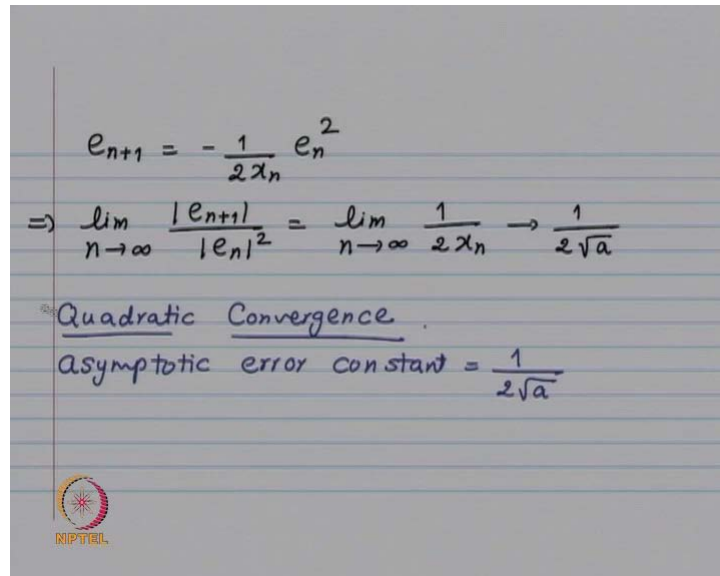 e_{n+1} = - \frac{1}{2x_n} e_n^2
⇒ \lim_{n→∞} \frac{|e_{n+1}|}{|e_n|^2} = \lim_{n→∞} \frac{1}{2x_n} → \frac{1}{2\sqrt{a}}
Quadratic Convergence.
asymptotic error constant = \frac{1}{2\sqrt{a}}
NPTEL